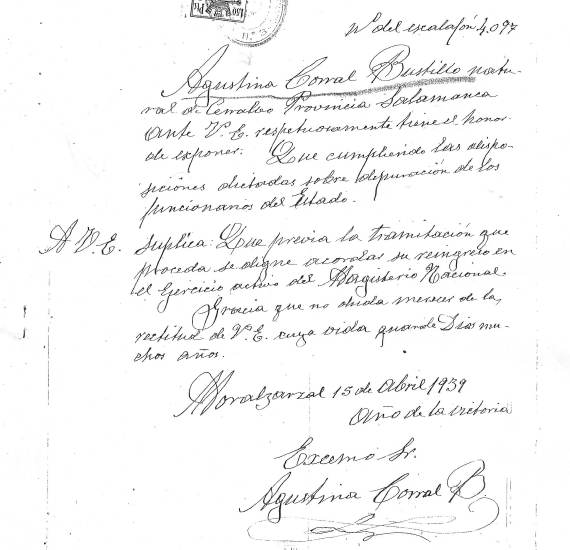 1'50 Pts
Nº del escalafón 4.097
Agustina Corral Bustillo natu-
ral de Cerralbo Provincia Salamanca
Ante V.E. respetuosamente tiene el honor
de exponer: Que cumpliendo las dispo-
siciones dictadas sobre depuración de los
funcionarios del Estado.
A V.E. suplica: Que previa la tramitación que
proceda se digne acordar su reingreso en
el Ejercicio activo del Magisterio Nacional.
Gracia que no duda merecer de la
rectitud de V.E. cuya vida guarde Dios mu-
chos años.
Moralzarzal 15 de Abril 1939
Año de la victoria
Excemo Sr.
Agustina Corral B.